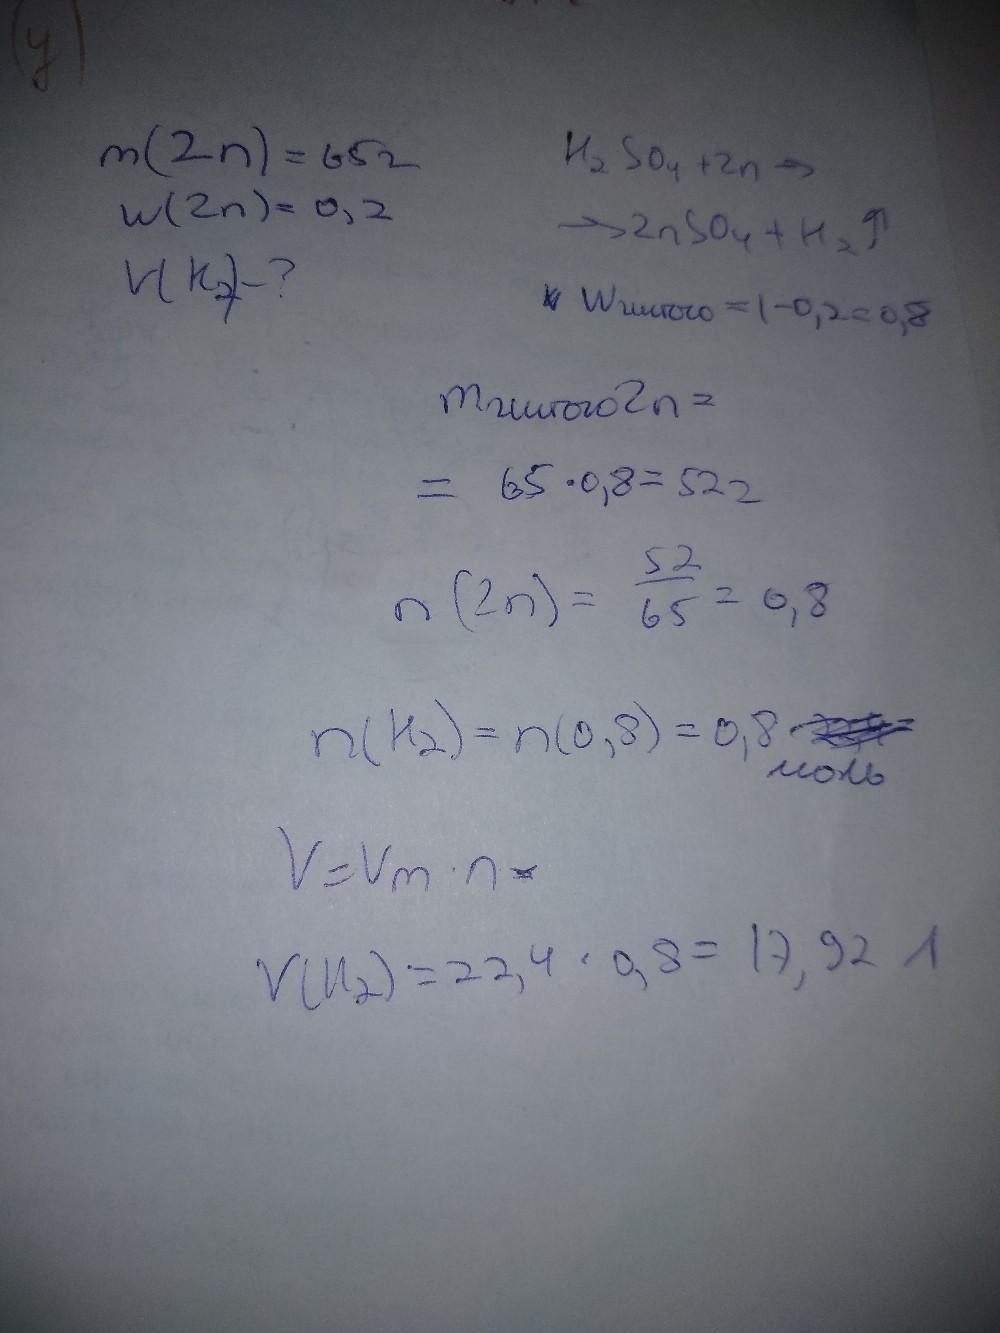 (у)
m(Zn) = 65г
w(Zn) = 0,2
V(H₂) - ?
H₂SO₄ + Zn →
→ ZnSO₄ + H₂↑
Wчистого = 1 - 0,2 = 0,8
mчистого Zn =
= 65 · 0,8 = 52г
n(Zn) = 52/65 = 0,8
n(H₂) = n(0,8) = 0,8
моль
V = Vm · n
V(H₂) = 22,4 · 0,8 = 17,92 л